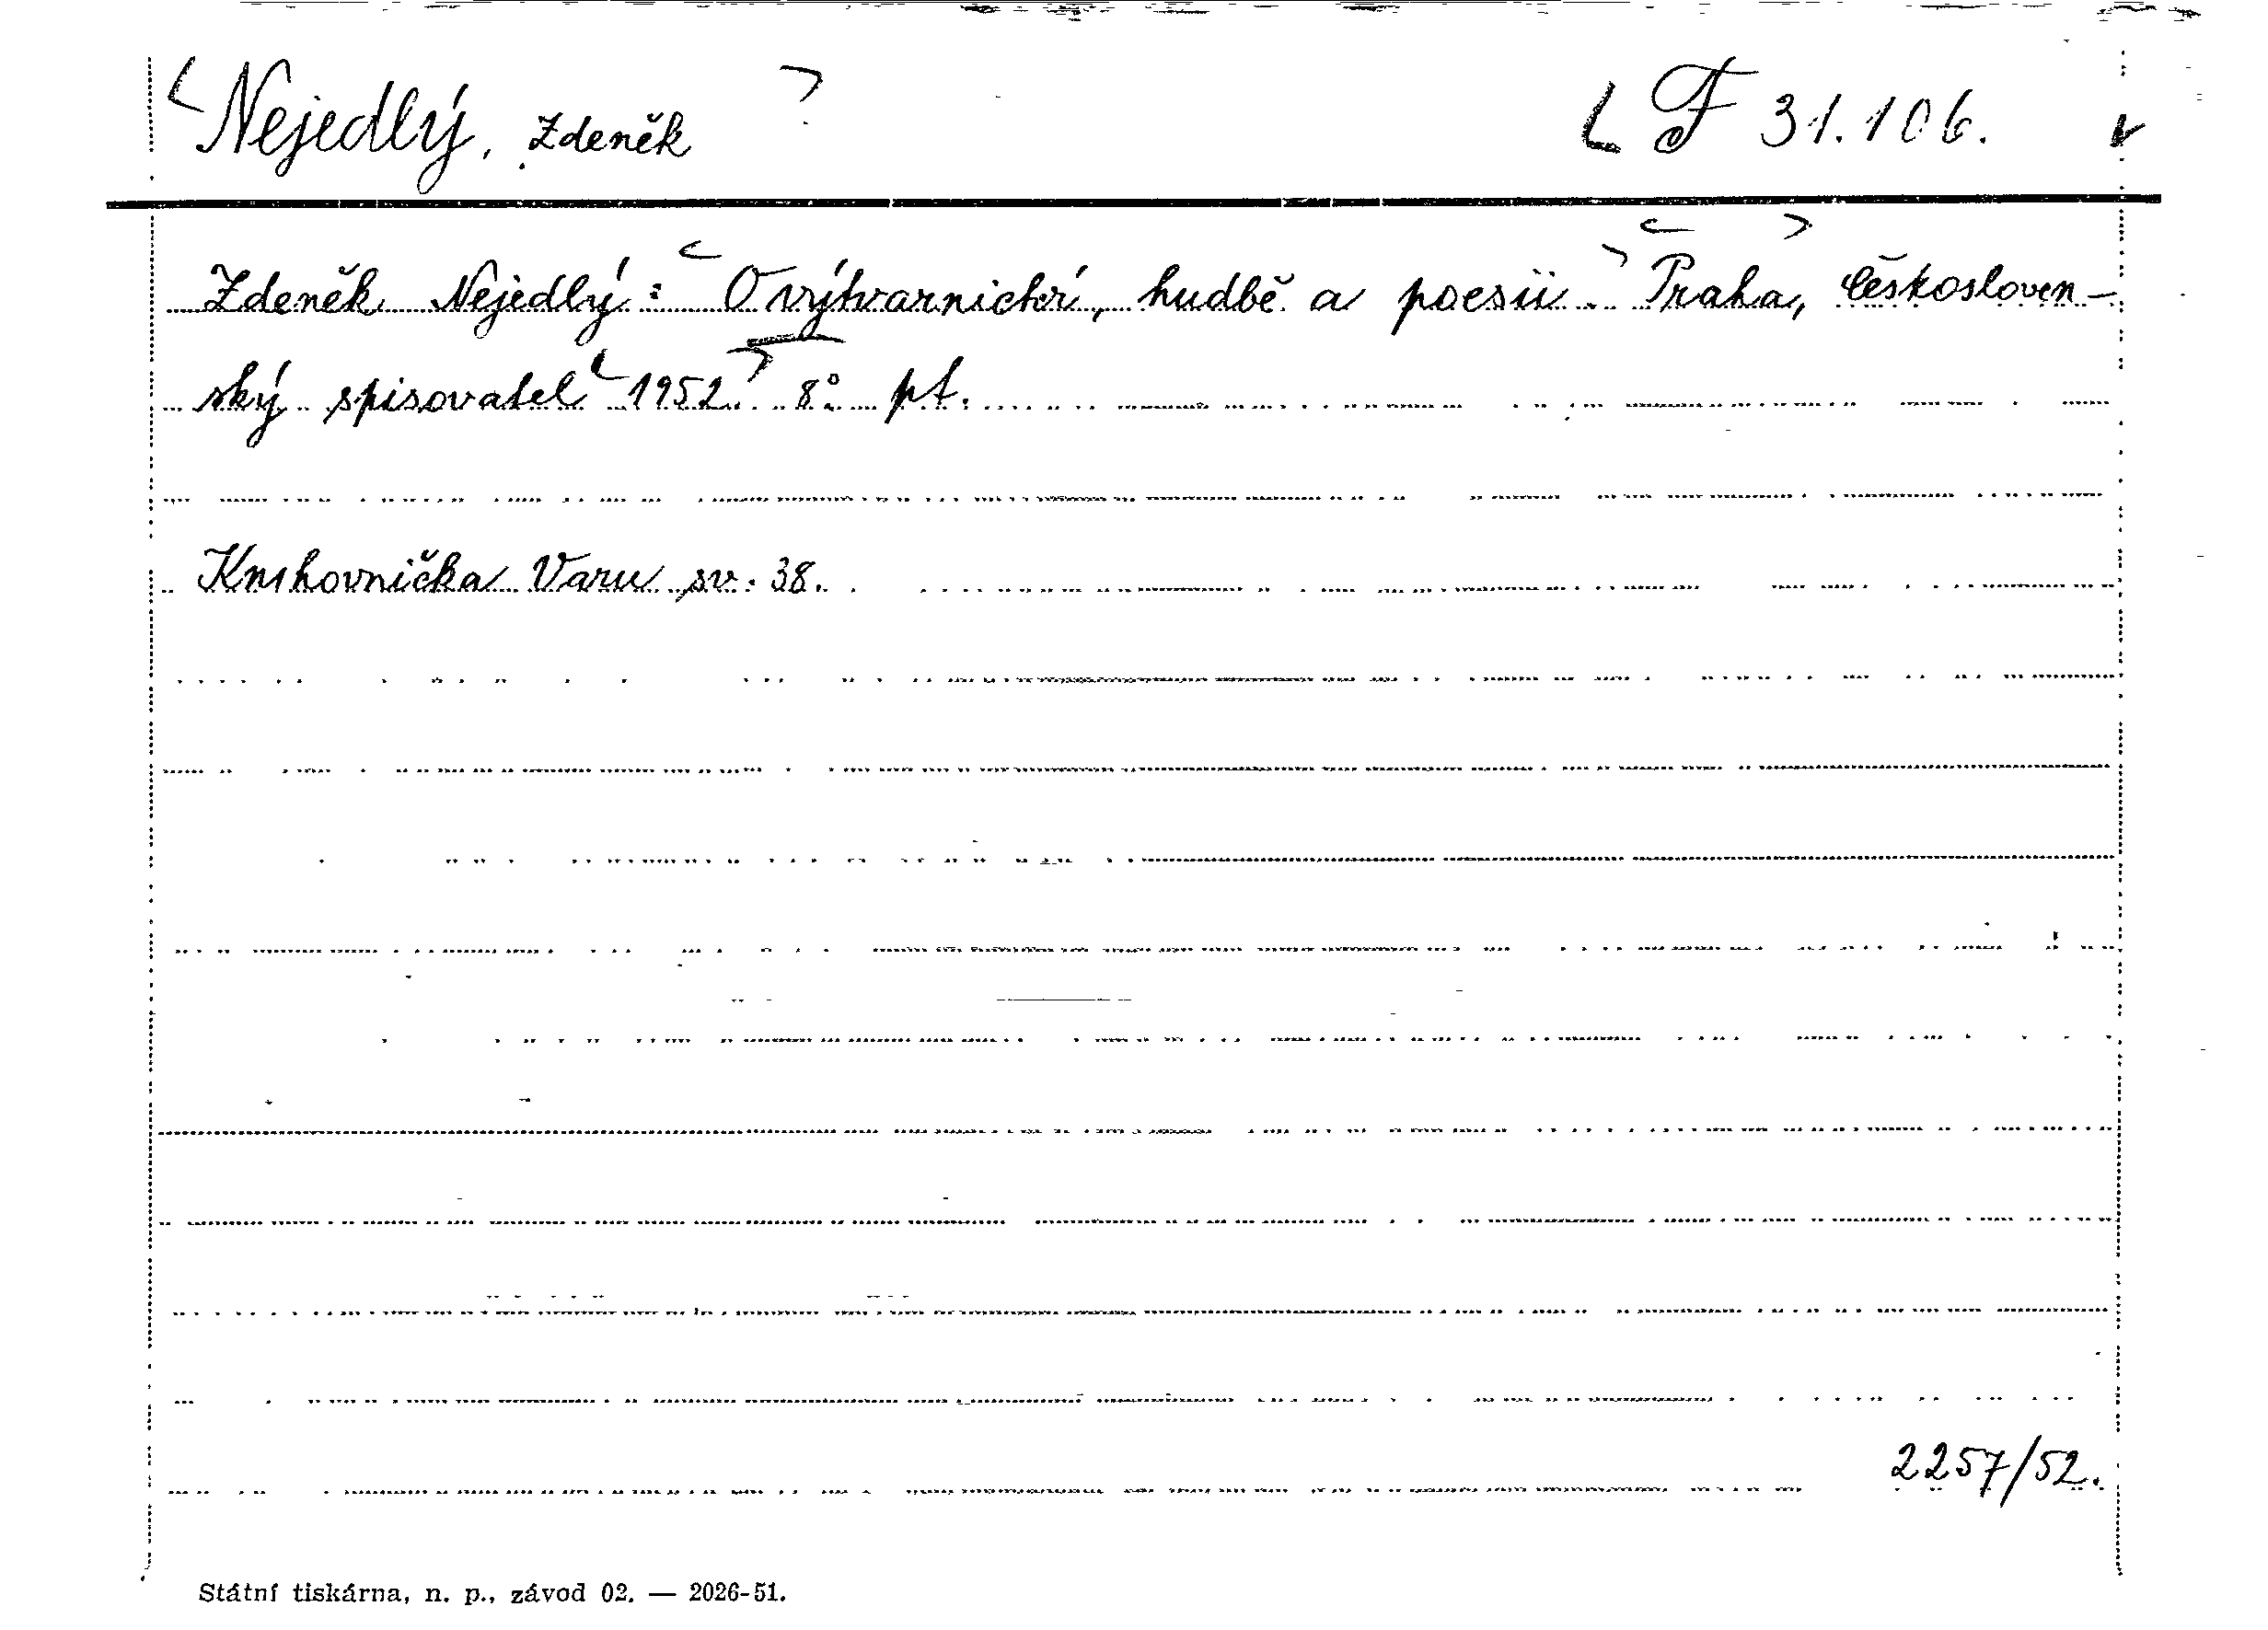 Nejedlý, Zdeněk F 31.106.
Zdeněk Nejedlý: O výtvarnictví, hudbě a poesii. Praha, Českosloven-
ský spisovatel 1952. 8° pt.
Knihovnička Varu sv. 38.
2257/52.
Státní tiskárna, n. p., závod 02. — 2026-51.